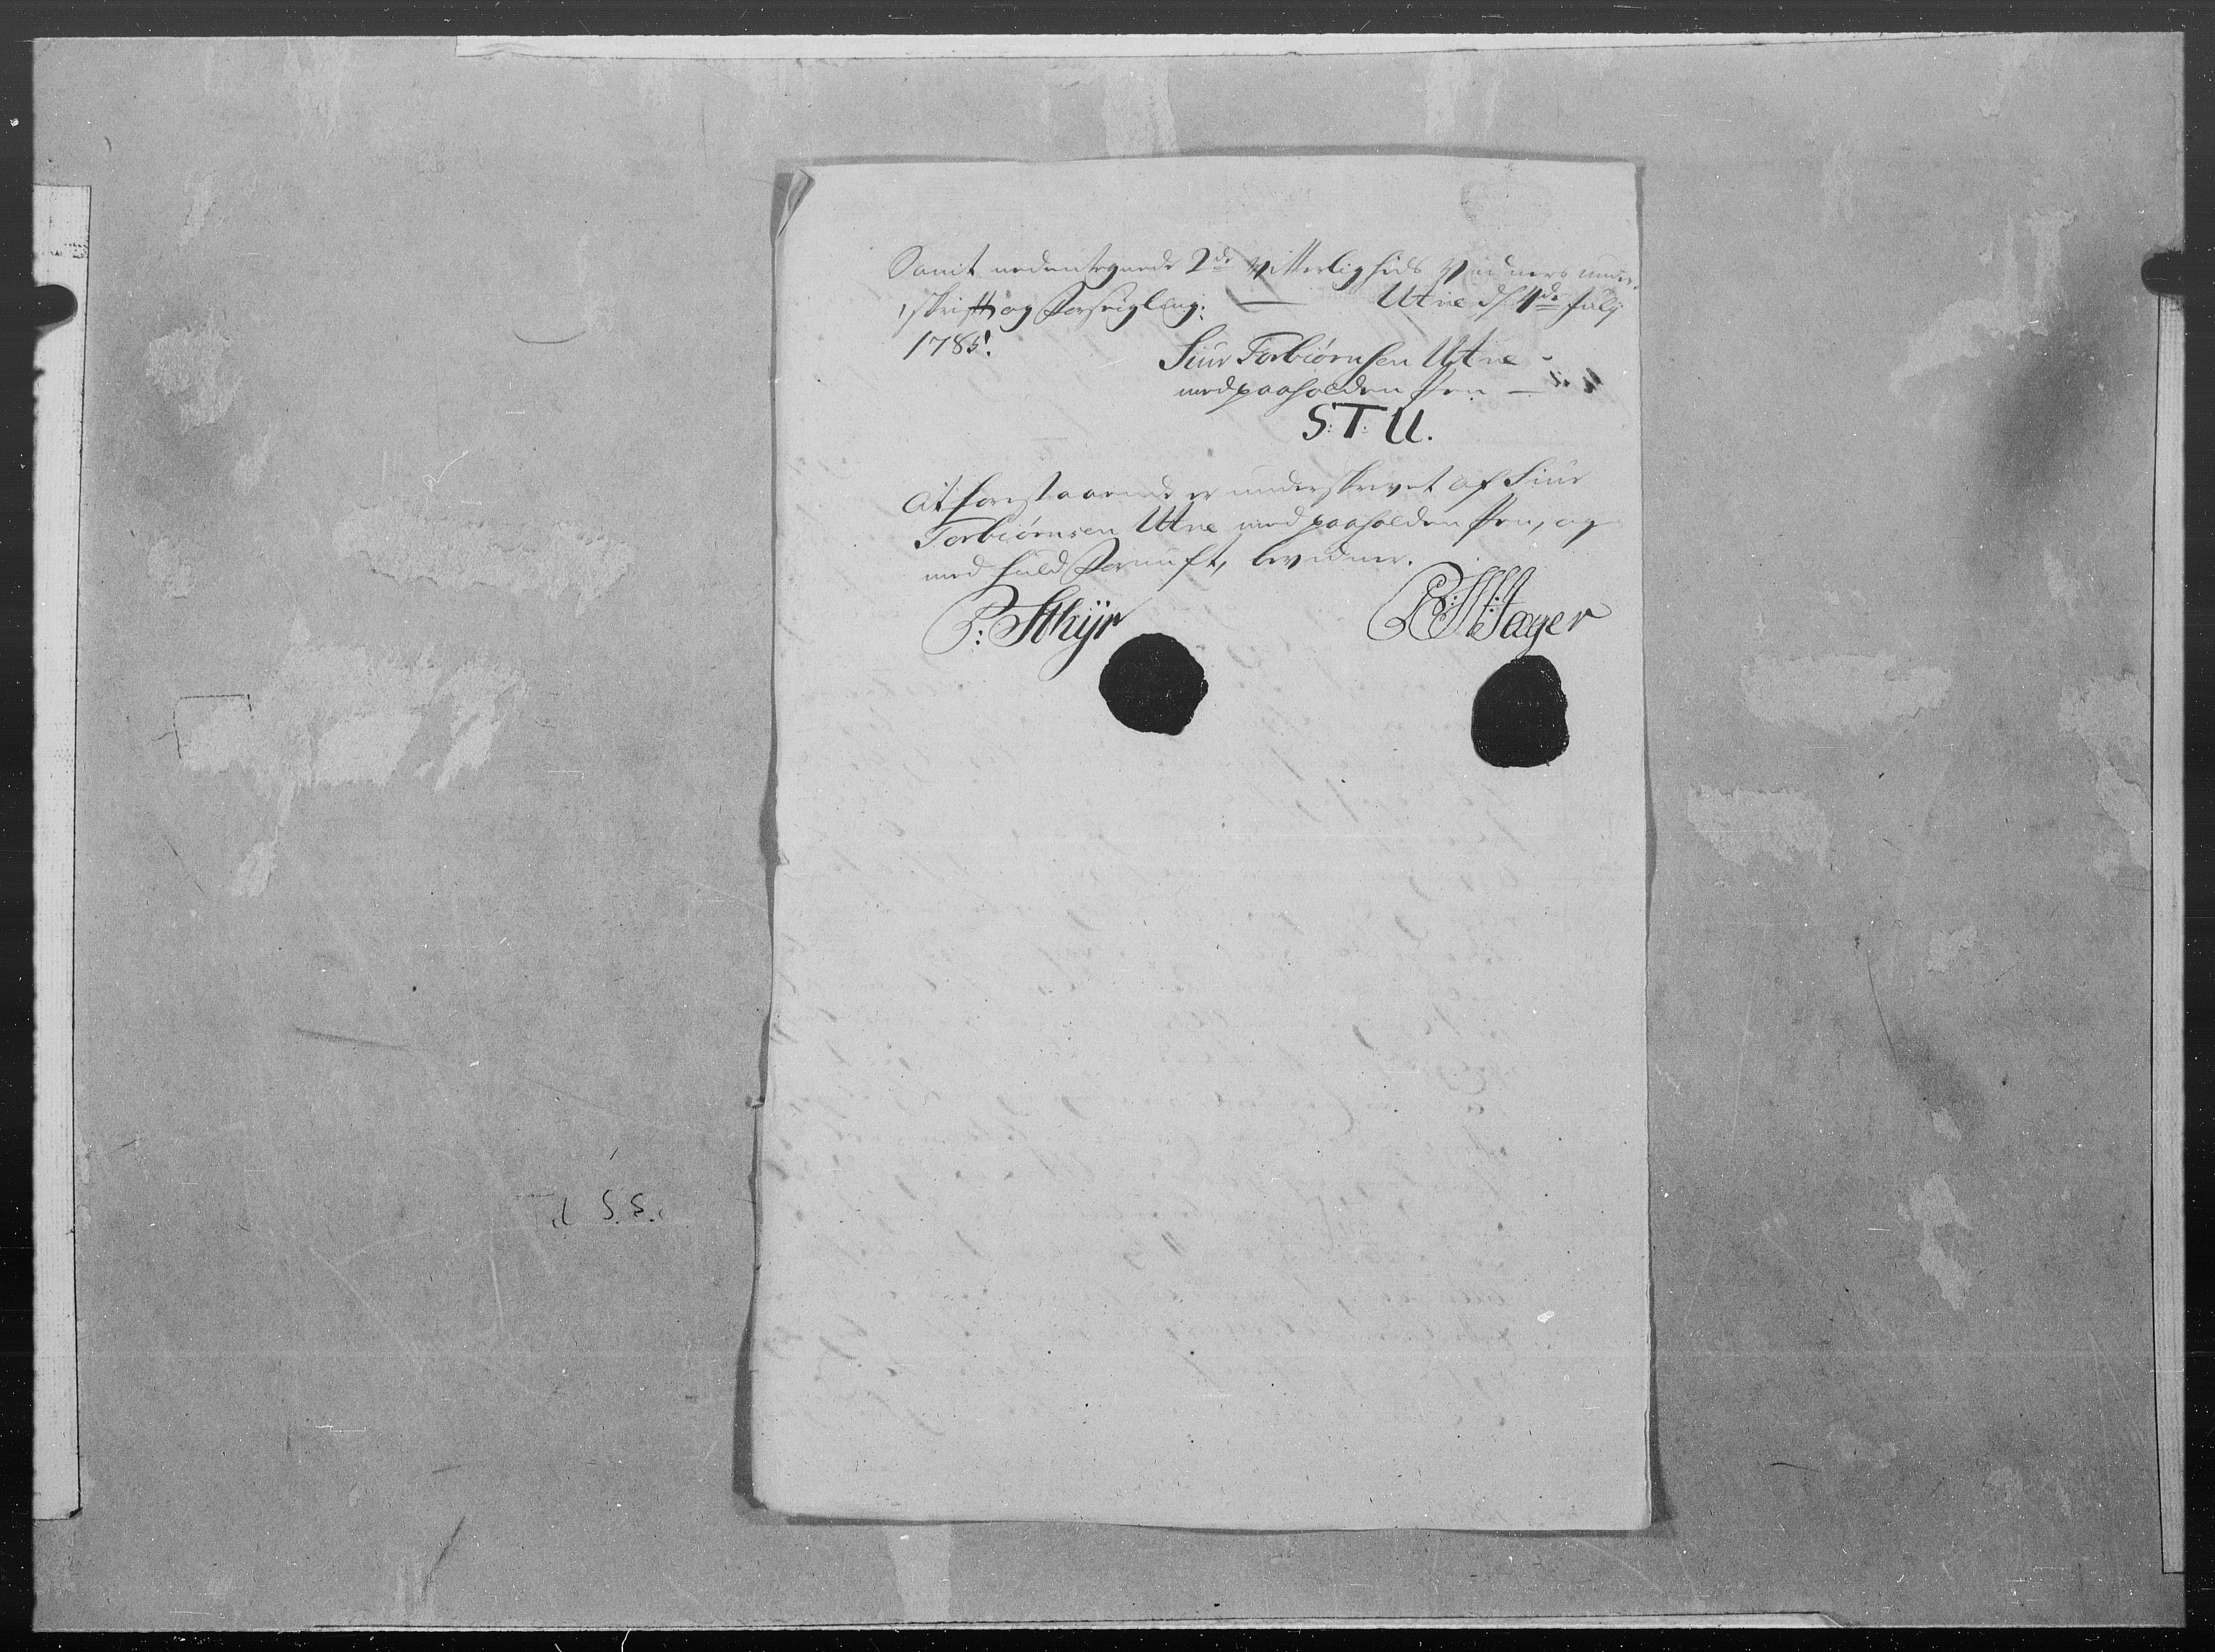 Samt nedentegnede 2de Vitterligheds Vidners under-
skrift og Forseigling: — Utne d. 4de July
1785.
Siur Torbiørnsen Utne
med paaholden Pen —
S: T: U.
At forestaaende er underskrevet af Siur
Torbiørnsen Utne med paaholden Pen, og
med fuld Fornuft, bevidner.
P: Sthyr
Jæger